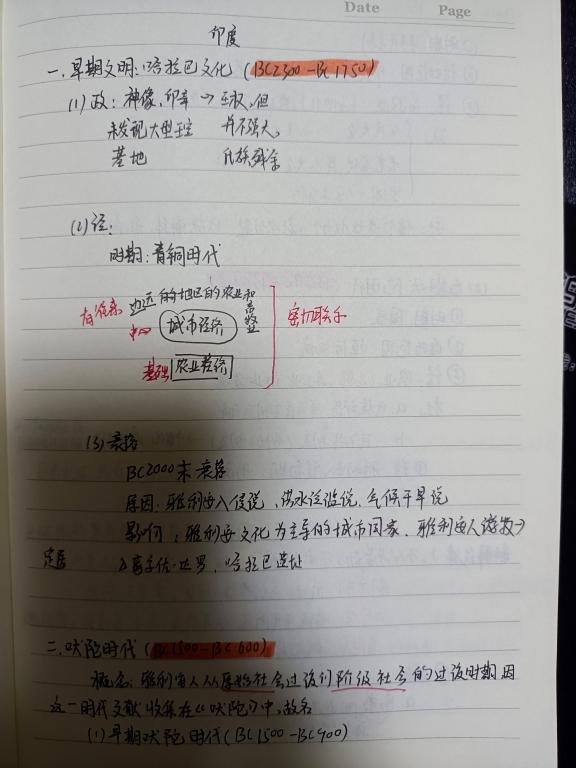 Date Page
印度
一、早期文明：哈拉巴文化（BC2300-BC1750）
(1) 政：神像、印章 → 王权，但
未发现大型王宫 并不强大，
基地 氏族残余
(2) 经：
时期：青铜时代
有往来 边远的地区的农业和畜牧业
中心 城市经济 密切联系
基础 农业经济
(3) 衰落
BC2000末衰落
原因：雅利安入侵说、洪水泛滥说、气候干旱说
影响：雅利安文化为主导的城市国家、雅利安人游牧→
定居 摩亨佐·达罗、哈拉巴遗址
二、吠陀时代（BC1500-BC600）
概念：雅利安人从原始社会过渡到阶级社会的过渡时期因
这一时代文献收集在《吠陀》中，故名
(1) 早期吠陀时代（BC1500-BC900）